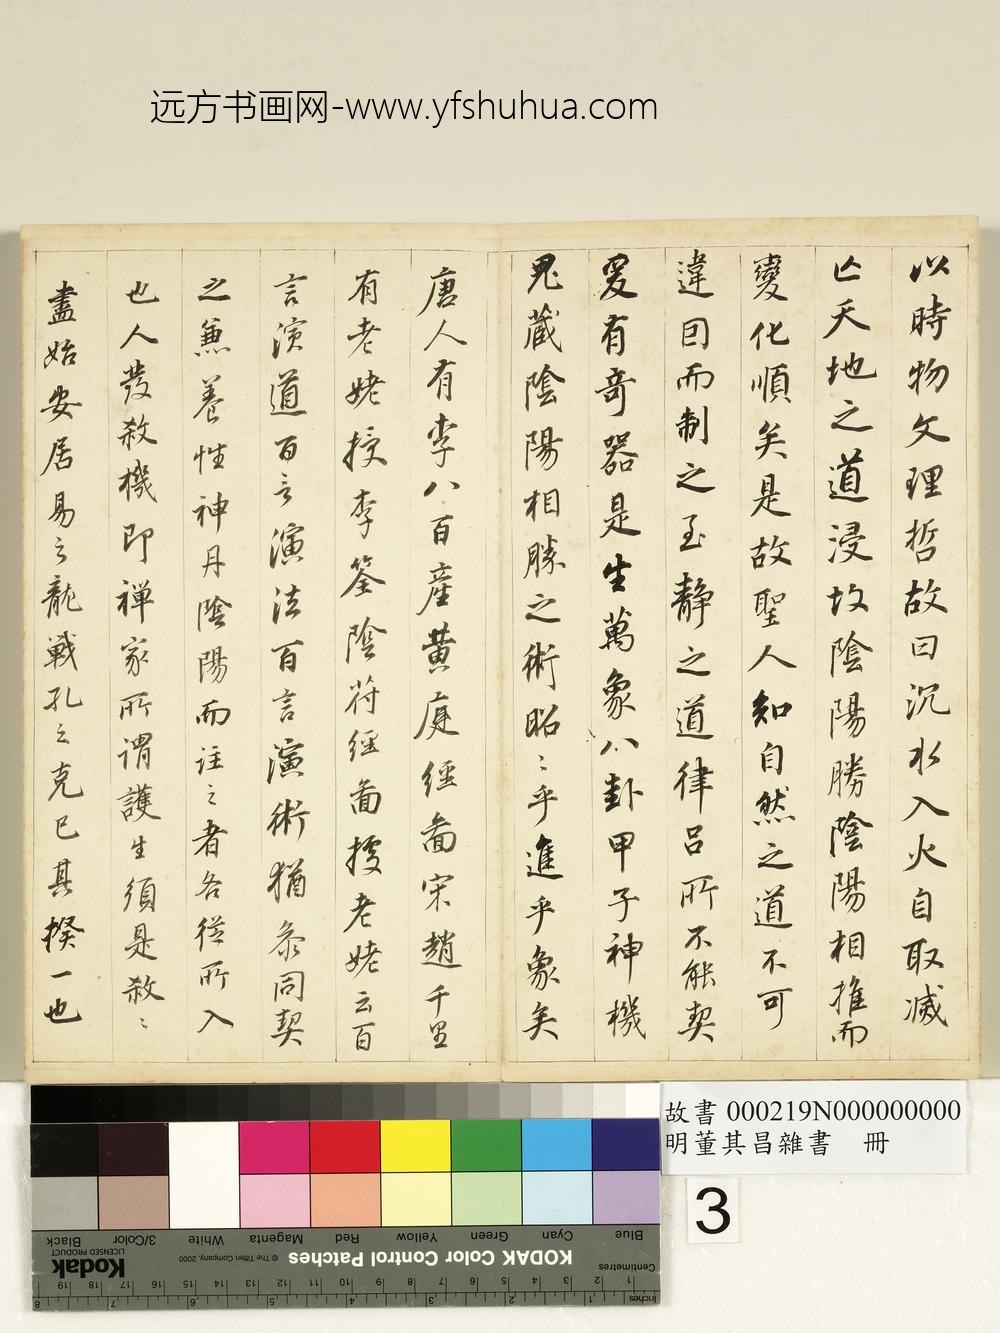 远方书画网-www.yfshuhua.com
以時物文理哲故曰沉水入火自取滅
亡天地之道浸故陰陽勝陰陽相推而
變化順矣是故聖人知自然之道不可
違因而制之至靜之道律呂所不能契
爰有奇器是生萬象八卦甲子神機
鬼藏陰陽相勝之術昭〻乎進乎象矣
唐人有李八百產黃庭經圖宋趙千里
有老姥授李筌陰符經圖據老姥云百
言演道百言演法百言演術猶參同契
之兼養性神丹陰陽而註〻者各從所入
也人發殺機即禪家所謂護生須是殺〻
盡始安居易之龍戰孔之克己其揆一也
故書000219N000000000
明董其昌雜書 冊
3
Blue Cyan Green Yellow Red Magenta White 3/Color Black
KODAK Color Control Patches
© The Tiffen Company, 2000
Kodak
LICENSED PRODUCT
Centimetres
1 2 3 4 5 6 7 8 9 10 11 12 13 14 15 16 17 18 19
Inches
1 2 3 4 5 6 7 8